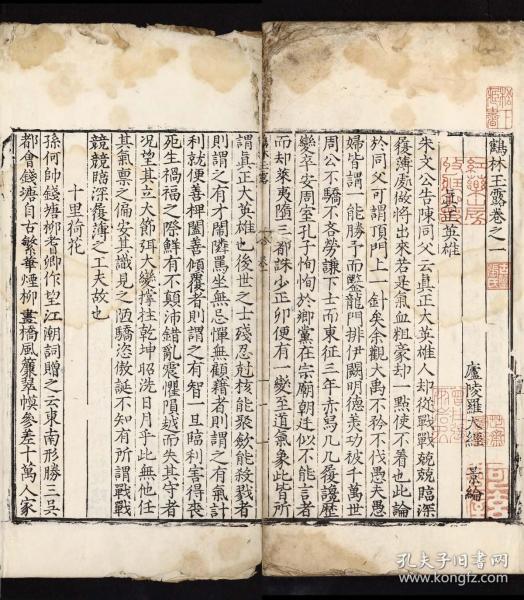 鶴林玉露卷之一
廬陵羅大經 景綸
真正英雄
朱文公告陳同父云真正大英雄人却從戰戰兢兢臨深
履薄處做將出來若是氣血粗豪却一點使不着也此論
於同父可謂頂門上一針矣余觀大禹不矜不伐愚夫愚
婦皆謂一能勝予而鑿龍門排伊闕明德美功被千萬世
周公不驕不吝勞謙下士而東征三年赤舄几几履讒歷
變卒安周室孔子恂恂於鄉黨在宗廟朝廷似不能言者
而却萊夷墮三都誅少正卯便有一變至道氣象此皆所
謂真正大英雄也後世之士殘忍尅核能聚歛能殺戮者
則謂之有才鬧闢罵坐無忌憚無顧藉者則謂之有氣計
利就便善捭闔善傾覆者則謂之有智一旦臨利害得喪
死生禍福之際鮮有不顛沛錯亂震懼隕越而失其守者
況望其立大節弭大變撐柱乾坤昭洗日月乎此無他任
其氣禀之偏安其識見之陋驕恣傲誕不知有所謂戰戰
兢兢臨深履薄之工夫故也
十里荷花
孫何帥錢塘柳耆卿作望江潮詞贈之云東南形勝三吳
都會錢塘自古繁華煙柳畫橋風簾翠幙參差十萬人家
孔夫子旧书网
www.kongfz.com